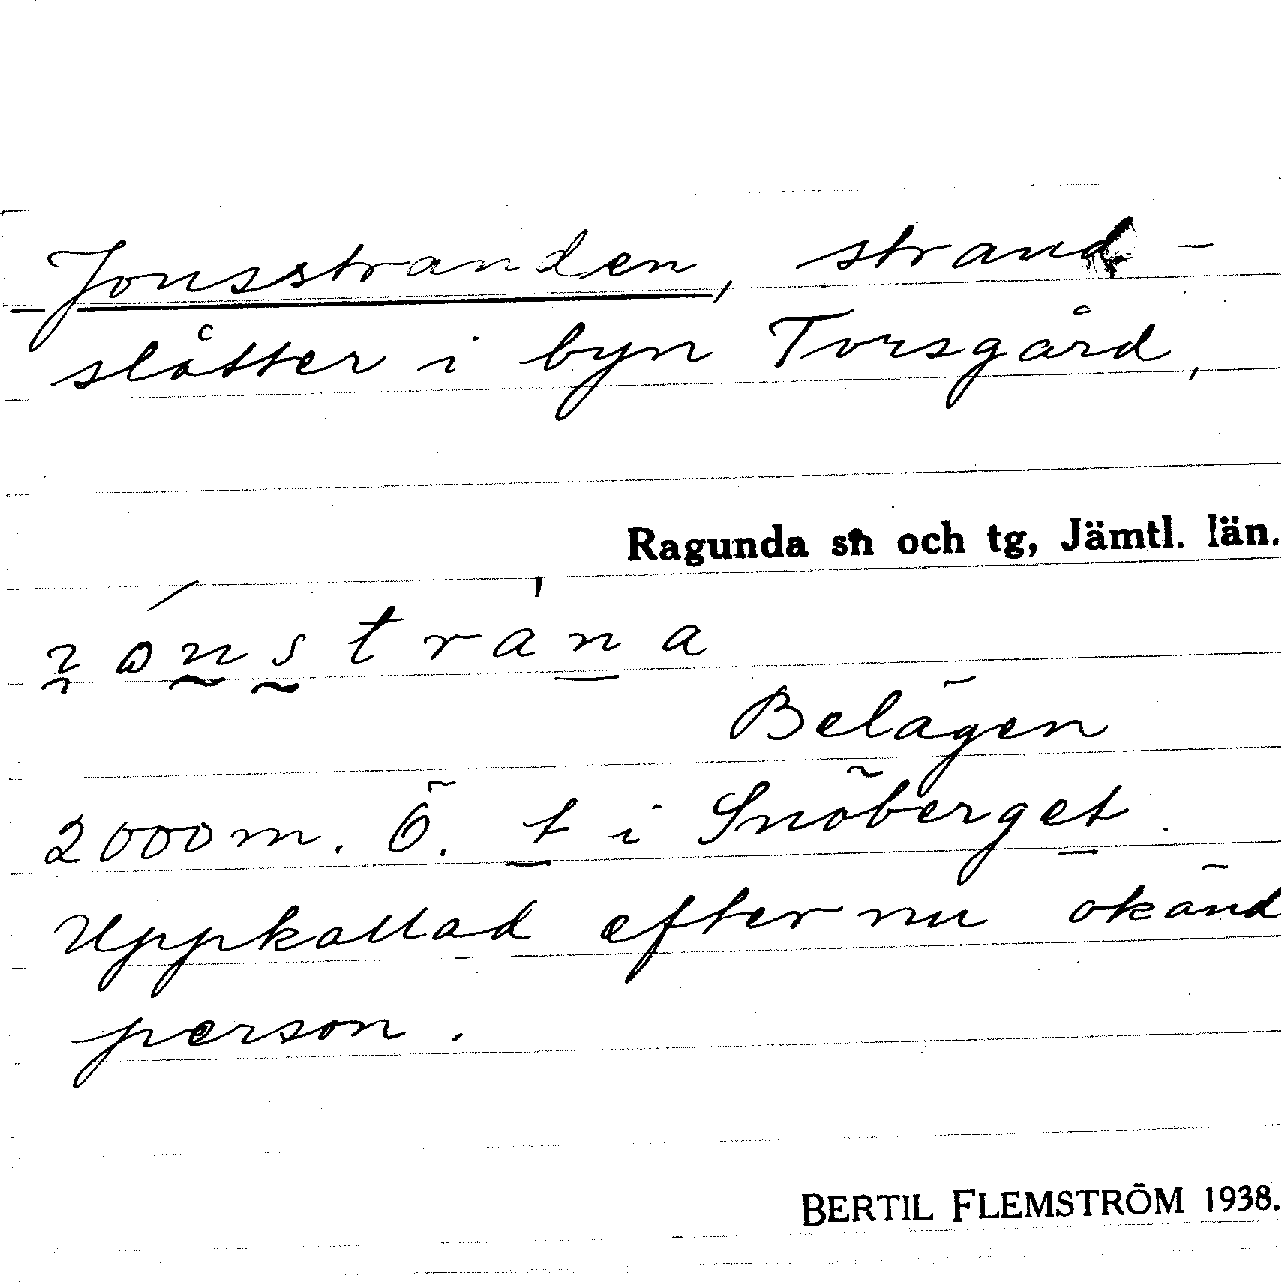 Jonsstranden, strand-
slåtter i byn Torsgård,
Ragunda sn och tg, Jämtl. län.
Belägen
2000 m. Ö. t i Snöberget.
Uppkallad efter nu okänd
person.
BERTIL FLEMSTRÖM 1938.